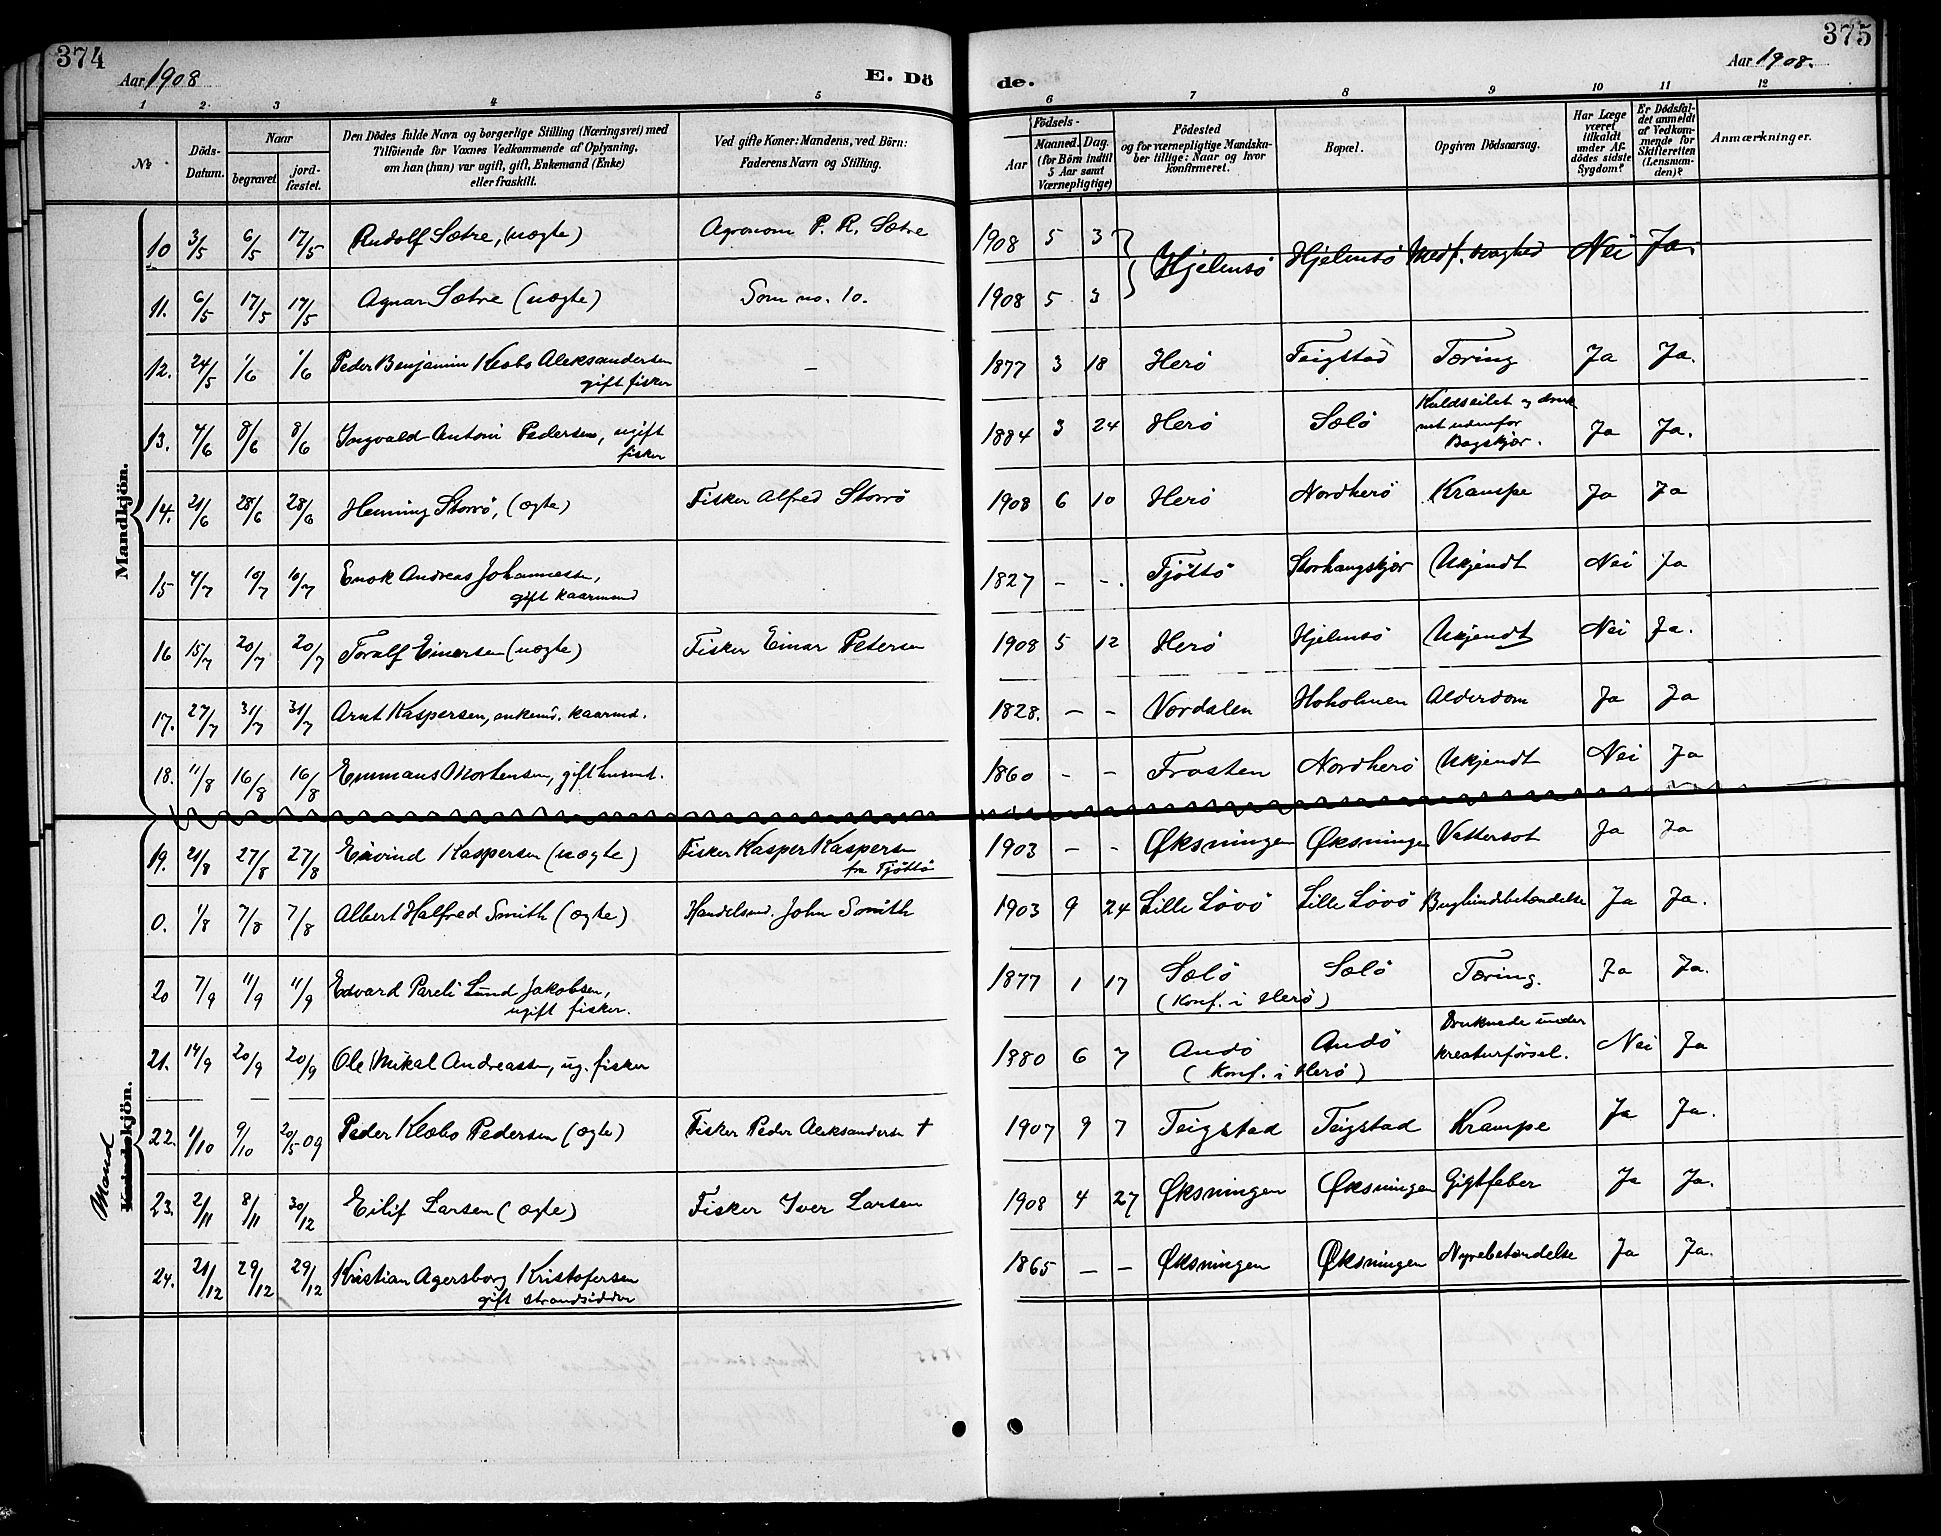 374
Aar 1908
E. Dö
de.
Aar 1908.
375
1 2 3 4 5 6 7 8 9 10 11 12
№
Döds-Datum.
Naar
begravet
jord-fæstet.
Den Dödes fulde Navn og borgerlige Stilling (Næringsvei) med
Tilföiende for Voxnes Vedkommende af Oplysning,
om han (hun) var ugift, gift, Enkemand (Enke)
eller fraskilt.
Ved gifte Koner: Mandens, ved Börn:
Faderens Navn og Stilling.
Födsels-
Aar
Maaned. Dag.
(for Börn indtil
5 Aar samt
Værnepligtige)
Födested
og for værnepligtige Mandska-
ber tillige: Naar og hvor
konfirmeret.
Bopæl.
Opgiven Dödsaarsag.
Har Læge
været
tilkaldt
under Af-
dödes sidste
Sygdom?
Er Dödsfal-
det anmeldt
af Vedkom-
mende for
Skifteretten
(Lensman-
den)?
Anmærkninger.
Mandkjön.
10 3/5 6/5 17/5 Rudolf Sætre, (uægte) Agronom P. R. Sætre 1908 5 3 Hjelmsö Hjelmsö Medf. svaghed Nei Ja.
11. 6/5 17/5 17/5 Agnar Sætre (uægte) Som no. 10. 1908 5 3
12. 24/5 1/6 1/6 Peder Benjamin Klæbo Aleksandersen – 1877 3 18 Herö Teigstad Tæring Ja Ja.
gift fisker
13. 4/6 8/6 8/6 Ingvald Antoni Pedersen, ugift 1884 3 24 Herö Sælö Kuldseilet og druk
net udenfor
Bagskjær. Ja Ja.
fisker
14. 21/6 28/6 28/6 Henning Storrö, (ægte) Fisker Alfred Storrö 1908 6 10 Herö Nordherö Krampe Ja Ja
15 4/7 10/7 10/7 Enok Andreas Johannessen, 1827 – –. Tjöttö Storhaugskjær Ukjendt Nei Ja
gift kaarmand
16 15/7 20/7 20/7 Toralf Einarsen (uægte) Fisker Einar Petersen 1908 5 12 Herö Hjelmsö Ukjendt Nei Ja.
17. 27/7 31/7 31/7 Arnt Kaspersen, enkemd. kaarmd. 1828. – – Nordalen Hoholmen Alderdom Ja Ja
18. 11/8 16/8 16/8 Emmaus Mortensen, gift husmd. 1860 – – Frosten Nordherö Ukjendt Nei Ja
Mand
Kvindekjön.
19. 21/8 27/8 27/8 Eivind Kaspersen (uægte) Fisker Kasper Kaspersen 1903 – – Øksningen Øksningen Vattersot Ja Ja
fra Tjöttö
0. 1/8 7/8 7/8 Albert Halfred Smith (ægte) Handelsmd. John Smith 1903 9 24 Lille Lövö Lille Lövö Bughindbetændelse Ja Ja.
20 7/9 11/9 11/9 Edvard Pareli Lund Jakobsen, 1877 1 17 Sælö Sælö Tæring. Ja Ja.
ugift fisker. (Konf. i Herö)
21. 14/9 20/9 20/9 Ole Mikal Andreassen, ug. fisker 1880 6 7 Andö Andö Druknede under
kreaturförsel. Nei Ja
(Konf. i Herö)
22. 1/10 9/10 20/5 09 Peder Klæbo Pedersen (ægte) Fisker Peder Aleksandersen † 1907 9 7 Teigstad Teigstad Krampe Ja Ja.
23. 2/11 8/11 30/12 Eilif Larsen (ægte) Fisker Iver Larsen 1908 4 27 Øksningen Øksningen Gigtfeber Ja Ja.
24. 21/12 29/12 29/12 Kristian Agersborg Kristofersen 1865 – – Øksningen Øksningen Nyrebetændelse Ja Ja.
gift strandsidder